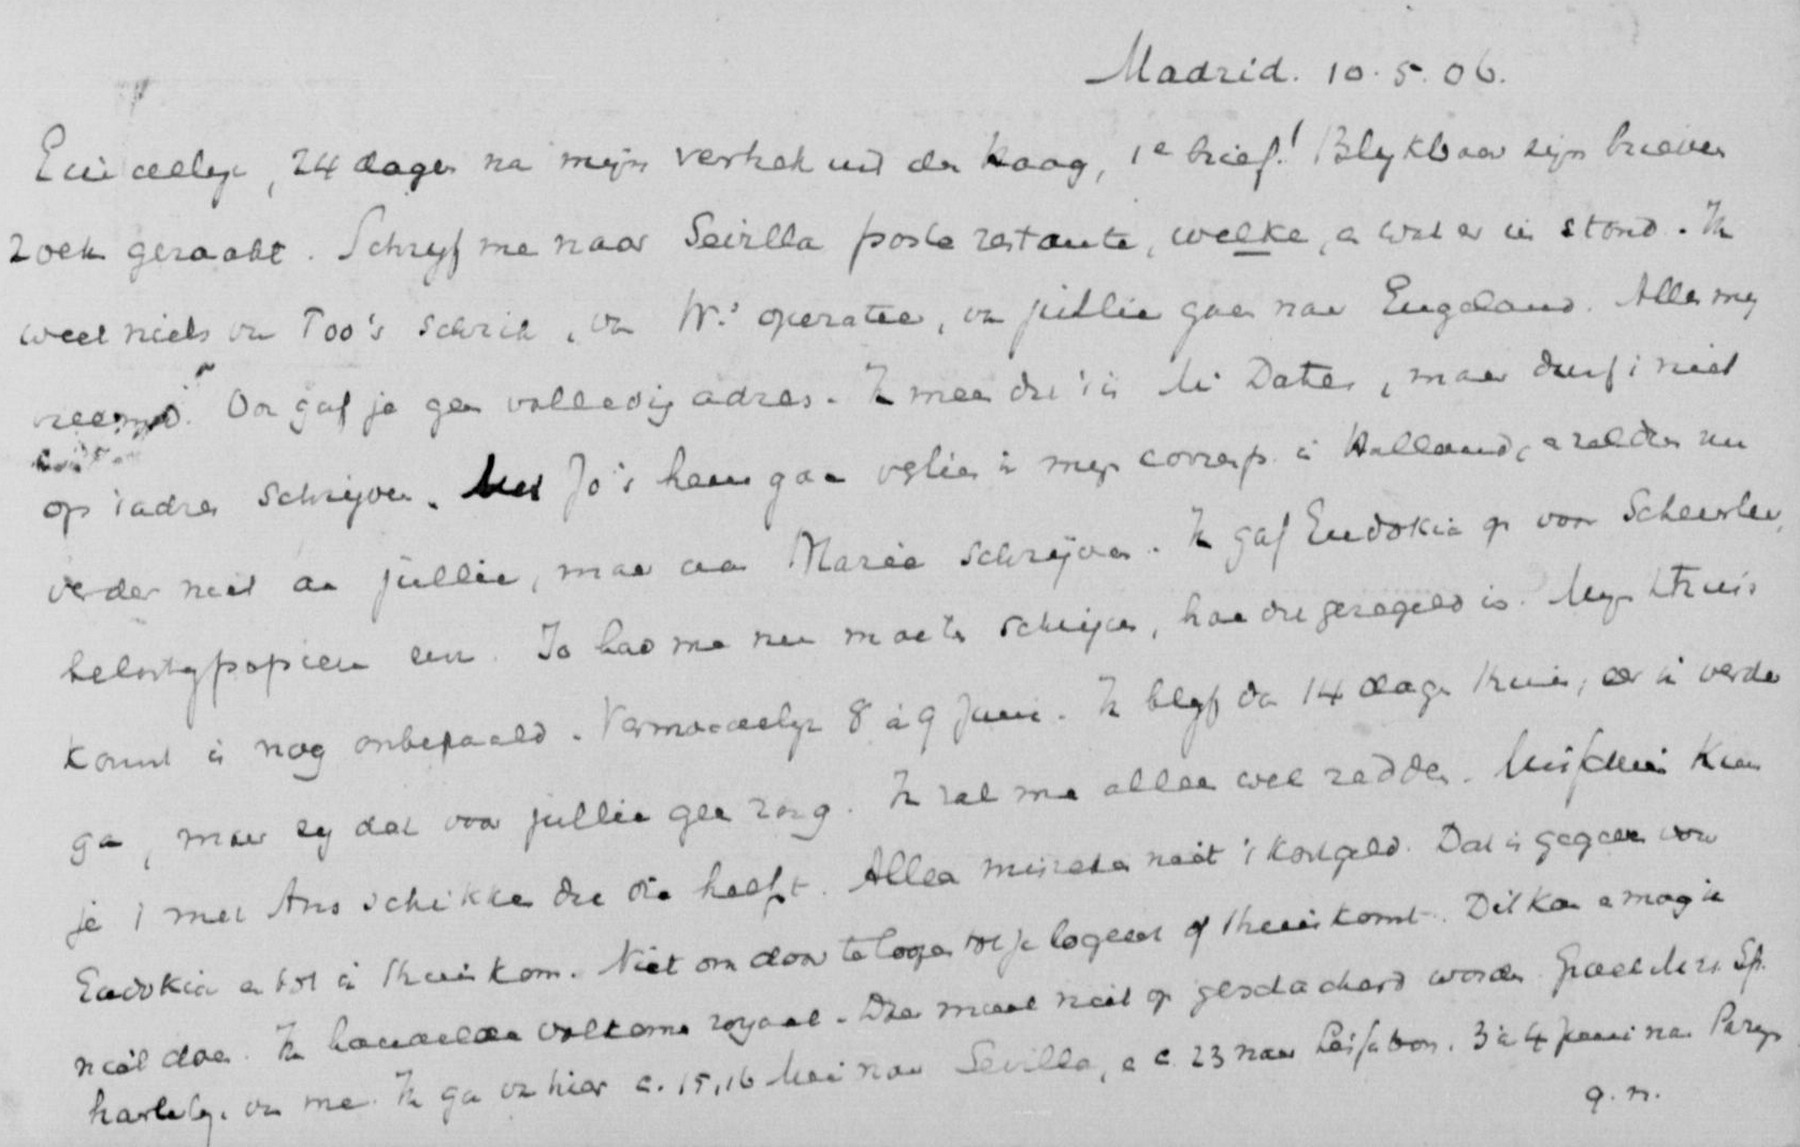 Madrid. 10.5.06.
Eindelijk, 24 dagen na mijn vertrek uit den Haag, 1e brief! Blykbaar zijn brieven
zoek geraakt. Schrijf me naar Sevilla poste restante, welke, en wat er in stond. Ik
weet niets van Too's schrik, van W.'s operatie, van jullie gaan naar Engeland. Alles my
vreemd. Ook gaf je geen volledig adres. Ik meen dat 't is Dates, maar durf 't niet
op 't adres schrijven. Met Jo's heengaan verlies ik mijn corresp. in Holland, en zal dus nu
verder niet aan jullie, maar aan Marie schrijven. Ik gaf Eudokia op voor Scheurleer,
belastgpapieren enz. Jo had me nu moeten schrijven, hoe dat geregeld is. Myn thuis
komst is nog onbepaald. Vermoedelijk 8 à 9 Juni. Ik blyf dan 14 dagen thuis, eer ik verder
ga, maar zij dat voor jullie geen zorg. Ik zal me alleen wel redden. Misschien kun
je 't met Ans schikken dat die helpt. Alleen misreken niet 't kostgeld. Dat is gegeven voor
Eudokia en tot ik thuiskom. Niet om door te loopen tot je logeert of thuiskomt. Dit kan en mag ik
niet doen. Ik handelde volkomen royaal. Daar moet niet op gesjacherd worden. Groet Sp.
hartelijk van me. Ik ga van hier c. 15, 16 Mei naar Sevilla, en c. 23 naar Lissabon. 3 à 4 Juni naar Parys
q.n.